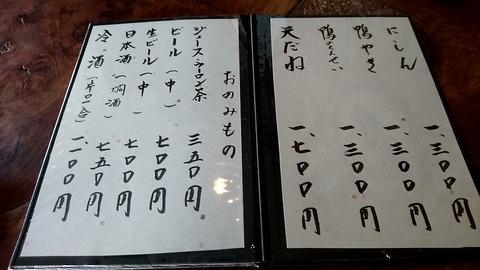 にしん 一、三〇〇円
鴨やき 一、三〇〇円
鴨 一、三〇〇円
天だね 一、七〇〇円
おのみもの
ジュース・ウーロン茶 三五〇円
ビール（中） 七〇〇円
生ビール（中） 七〇〇円
日本酒（燗酒） 七五〇円
冷酒（片口一合） 一、一〇〇円